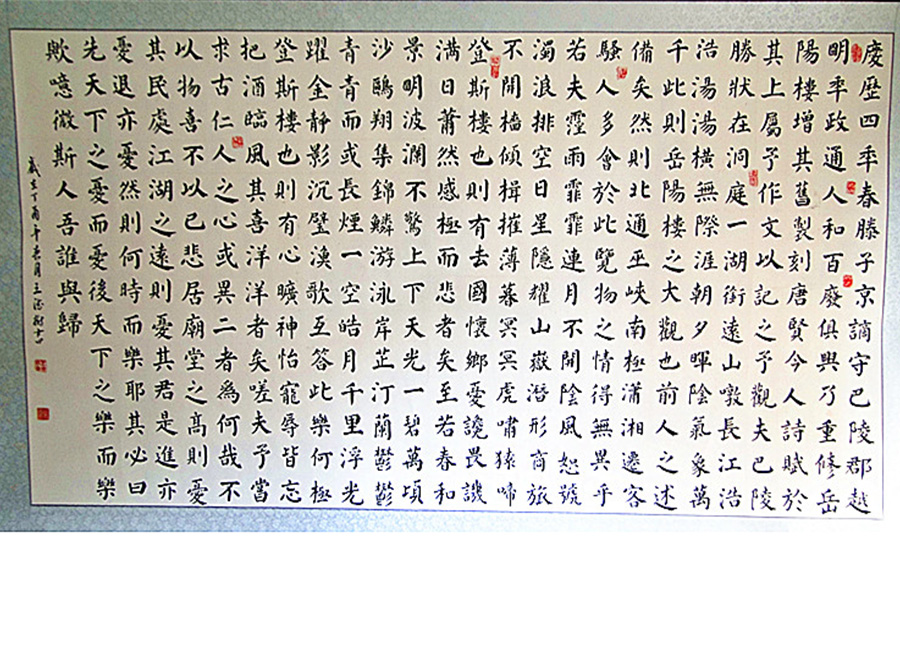 慶歷四年春滕子京謫守巴陵郡越
明年政通人和百廢俱興乃重修岳
陽樓增其舊製刻唐賢今人詩賦於
其上屬予作文以記之予觀夫巴陵
勝狀在洞庭一湖銜遠山噉長江浩
浩湯湯橫無際涯朝夕暉陰氣象萬
千此則岳陽樓之大觀也前人之述
備矣然則北通巫峽南極瀟湘遷客
騷人多會於此覽物之情得無異乎
若夫霪雨霏霏連月不開陰風怒號
濁浪排空日星隱耀山嶽潛形商旅
不開檣傾楫摧薄暮冥冥虎嘯猿啼
登斯樓也則有去國懷鄉憂讒畏譏
滿目蕭然感極而悲者矣至若春和
景明波瀾不驚上下天光一碧萬頃
沙鷗翔集錦鱗游泳岸芷汀蘭鬱鬱
青青而或長煙一空皓月千里浮光
躍金靜影沉璧漁歌互答此樂何極
登斯樓也則有心曠神怡寵辱皆忘
把酒臨風其喜洋洋者矣嗟夫予嘗
求古仁人之心或異二者為何哉不
以物喜不以己悲居廟堂之高則憂
其民處江湖之遠則憂其君是進亦
憂退亦憂然則何時而樂耶其必曰
先天下之憂而憂後天下之樂而樂
歟噫微斯人吾誰與歸
丁酉年